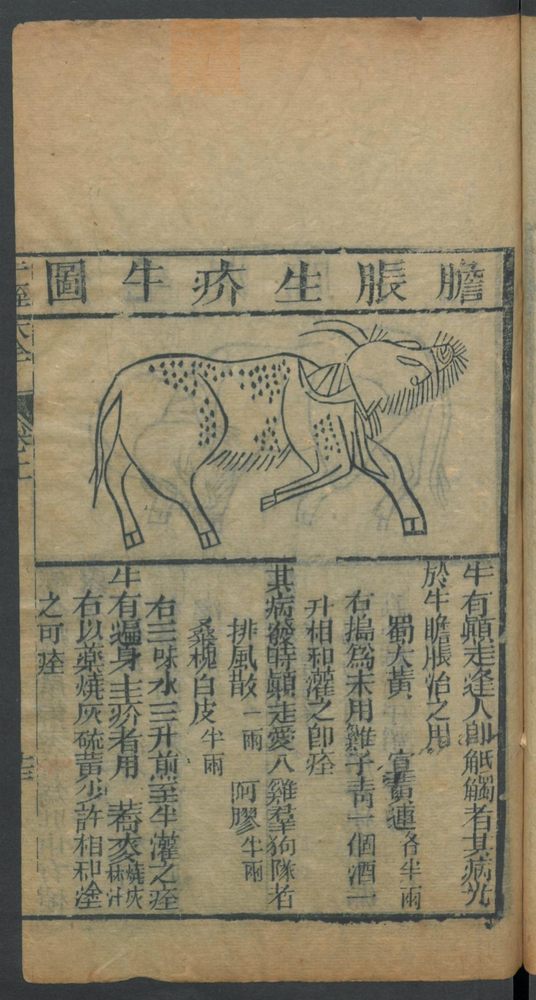 膽脹生疥牛圖
牛有顛走逢人卽觝觸者其病尤
於牛膽脹治之用
蜀大黃 宣黃連各半兩
右搗爲末用雞子青一個酒一
升相和灌之卽痊
其病發時顛走愛入雞羣狗隊者
排風散一兩 阿膠半兩
桑槐白皮半兩
右三味水三升煎至半灌之痊
牛有遍身生疥者用 蕎麥燒灰淋汁
右以藥燒灰硫黃少許相和塗
之可痊